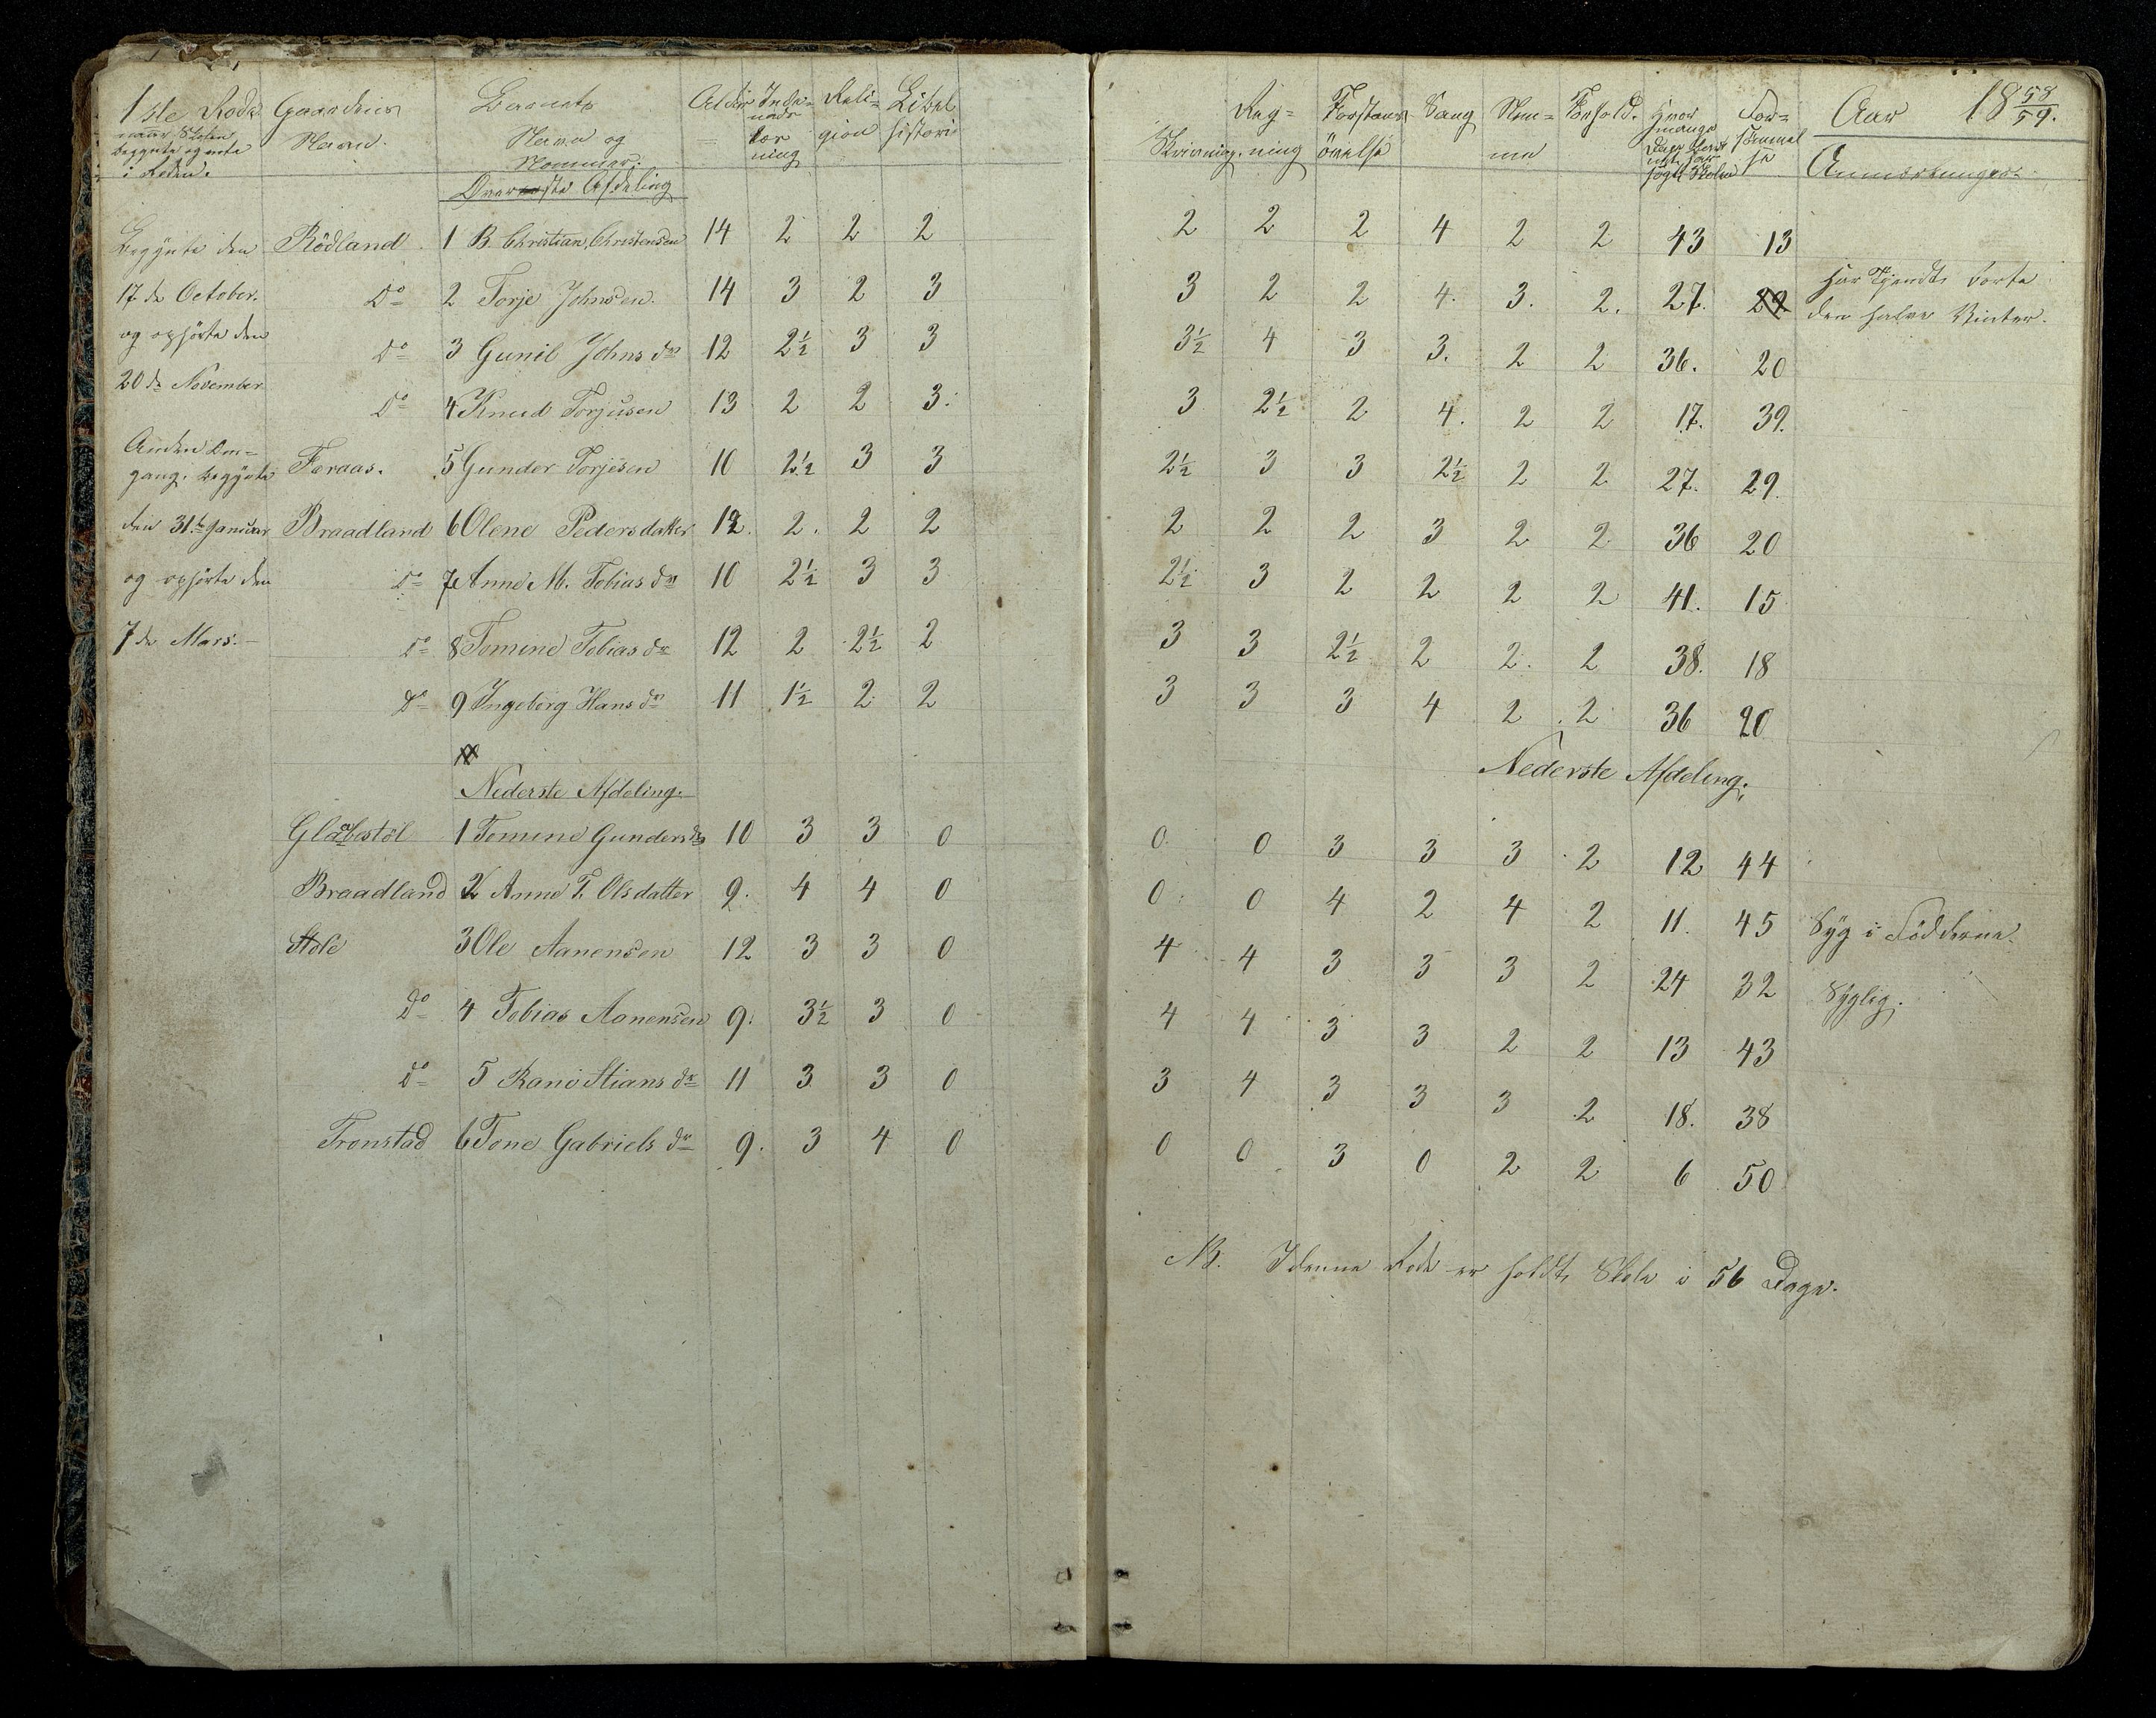 1ste Rode
naar Skolen
begynte og endte
i Roden.
Gaardens
Navn.
Barnets
Navn og
Nommer.
Alder
Inde-
nads
læs
ning
Reli-
gion
Bibel
historie
Øverste Afdeling
Begynte den Rödland 1 B. Christian Christensen 14 2 2 2
17de October. Do 2 Torje Johnsen. 14 3 2 3
og ophörte den
Do 3 Gunil Johns dr 12 2½ 3 3
20de November
Do 4 Knud Torjusen 13 2 2 3.
Anden Om-
gang. begynte Faraas. 5 Gunder Torjesen 10 2½ 3 3
den 31te Januar Braadland 6 Olene Pedersdatter 12. 2. 2 2
og ophörte den Do 7 Anne M. Tobias dr 10 2½ 3 3
7de Mars.- Do 8 Tomine Tobias dr 12 2 2½ 2
Do 9 Ingeborg Hans dr 11 1½ 2 2
Nederste Afdeling.
Glabestöl 1 Tomine Gunders dr 10 3 3 0
Braadland 2 Anne T. Olsdatter 9. 4 4 0
Stole 3 Ole Aanensen 12 3 3 0
Do 4 Tobias Aanensen 9. 3½ 3 0
Do 5 Rani Stians dr 11 3 3 0
Tronstad 6 Tone Gabriels dr 9. 3 4 0
Skrivning.
Reg-
ning
Forstands
övelse
Sang
Nem-
me
Forhold.
Hvor
mange
Dage Bar-
net har
sögt Skolen
For-
sömmel
se
Aar 18 58/59.
Anmærkninger
2 2 2 4 2 2 43 13
3 2 2 4. 3. 2. 27. 29 Har Tjendt borte
den halve Vinter.
3½ 4 3 3. 2 2 36. 20
3 2½ 2 4. 2 2 17. 39.
2½ 3 3 2½ 2 2 27. 29.
2 2 2 3 2 2 36 20
2½ 3 2 2 2 2 41. 15
3 3 2½ 2 2. 2 38. 18
3 3 3 4 2 2 36 20
Nederste Afdeling.
0 0 3 3 3 2 12 44
0 0 4 2 4 2 11. 45 Syg i Födderne.
4 4 3 3 3 2 24 32 Syglig.
4 4 3 3 2 2 13 43
3 4 3 3 3 2 18. 38
0 0 3 0 2 2 6 50
NB. I denne Rode er holdt Skole i 56 Dage.